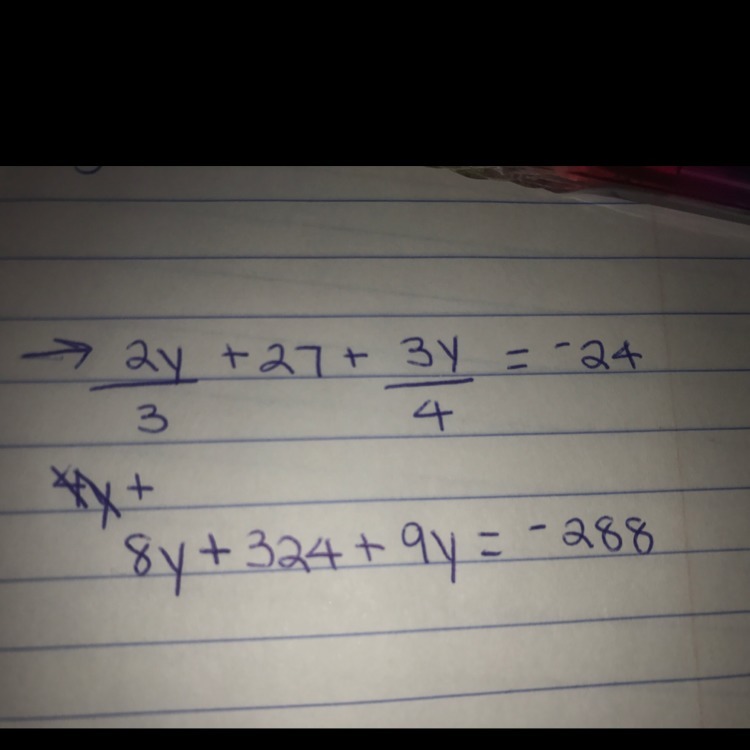 → 2y/3 + 27 + 3y/4 = -24
4y +
8y + 324 + 9y = -288